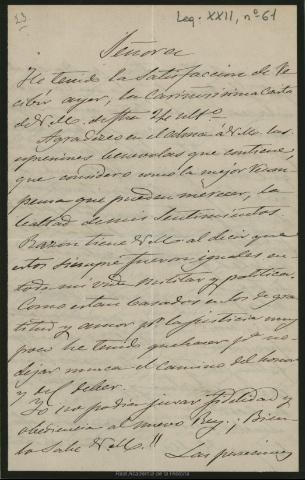 23
Leg. XXII, nº 61
Señora
He tenido la satisfaccion de re
cibir ayer, la cariñosisima carta
de V.M. del ulto
Agradezco en el alma á V.M. las
espresiones benevolas que contiene,
que considero como la mejor recom
pensa que pueden merecer, la
lealtad de mis sentimientos.
Razon tiene V.M. al decir que
estos siempre fueron iguales en
toda mi vida militar y politica.
Como estan basados en los de gra
titud y amor pr la justicia muy
poco he tenido que hacer pa no
dejar nunca el camino del honor
y del deber.
Yo no podia jurar fidelidad y
obediencia al nuevo Rey; ¡Bien
lo sabe V.M.!!
Las
Real Academia de la Historia